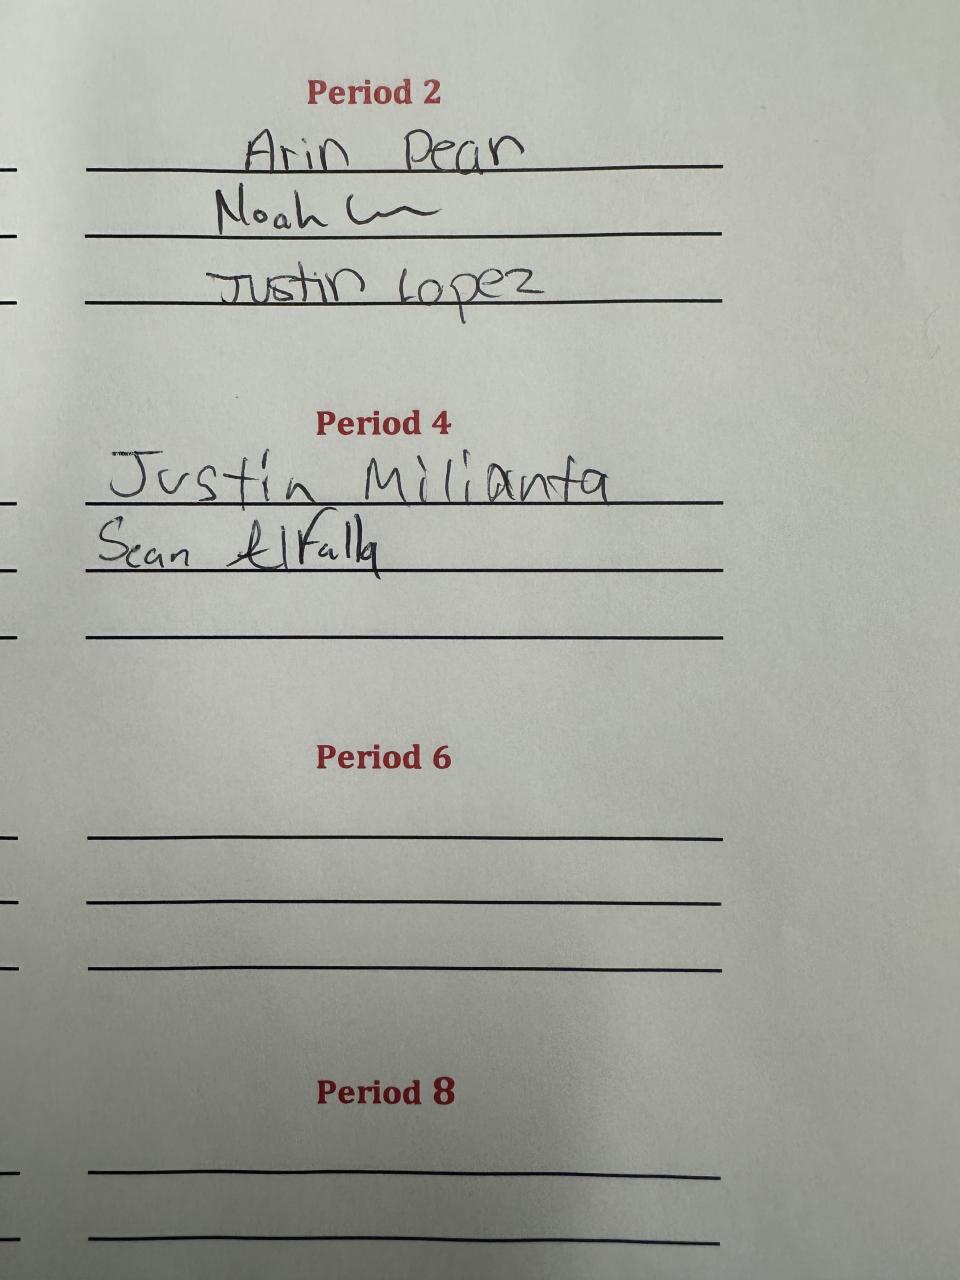 Period 2
Arin Dean
Noah
Justin Lopez
Period 4
Justin Milianta
Sean Elfalla
Period 6
Period 8